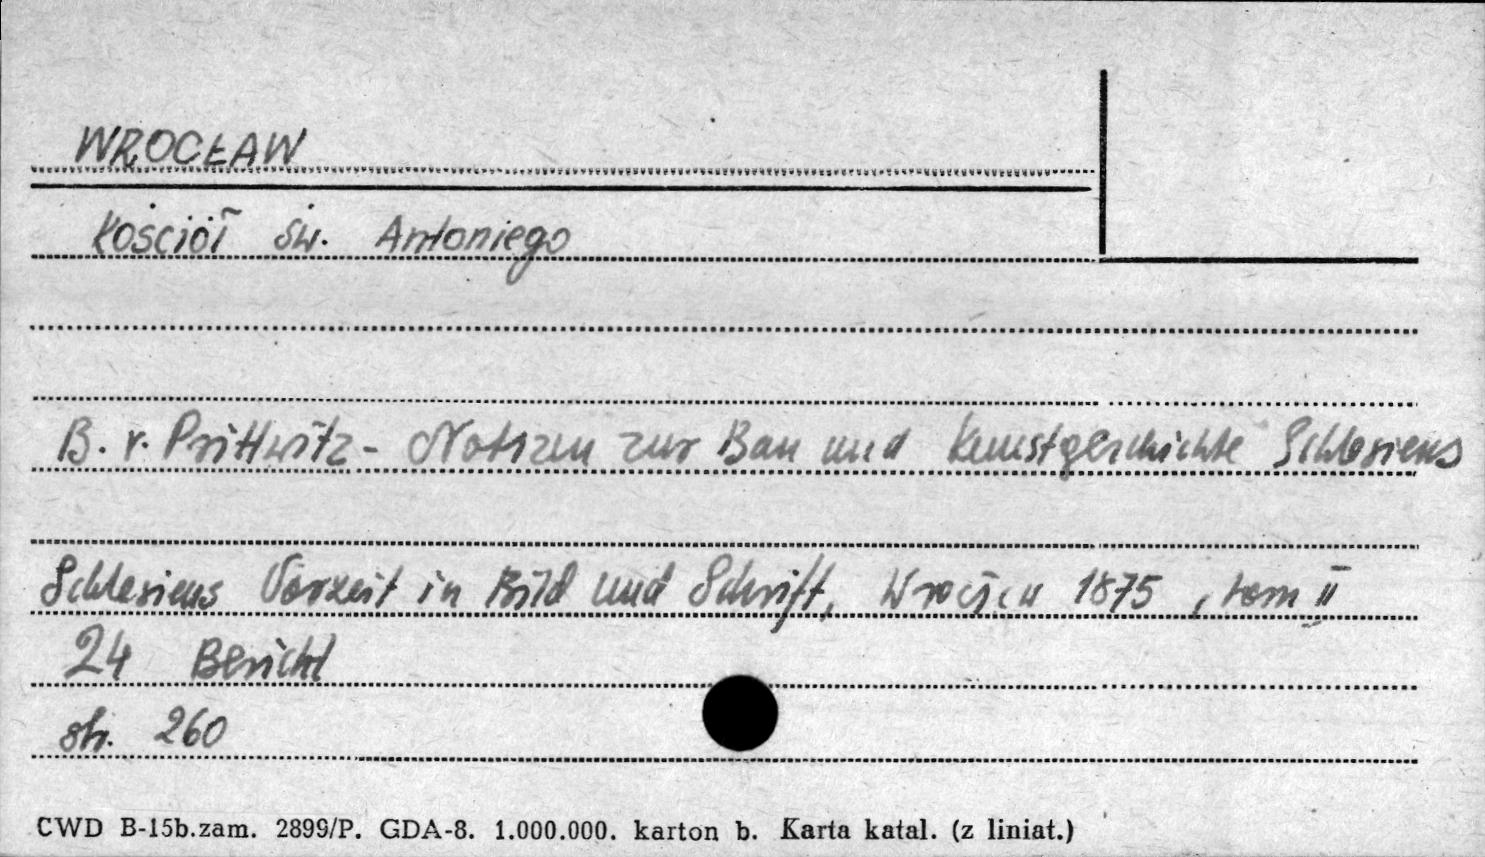 WROCŁAW
Kościół św. Antoniego
B. v. Prittwitz - Notizen zur Bau und Kunstgeschichte Schlesiens
Schlesiens Vorzeit in Bild und Schrift, 1875, tom II
24 Bericht
str. 260
CWD B-15b.zam. 2899/P. GDA-8. 1.000.000. karton b. Karta katal. (z liniat.)